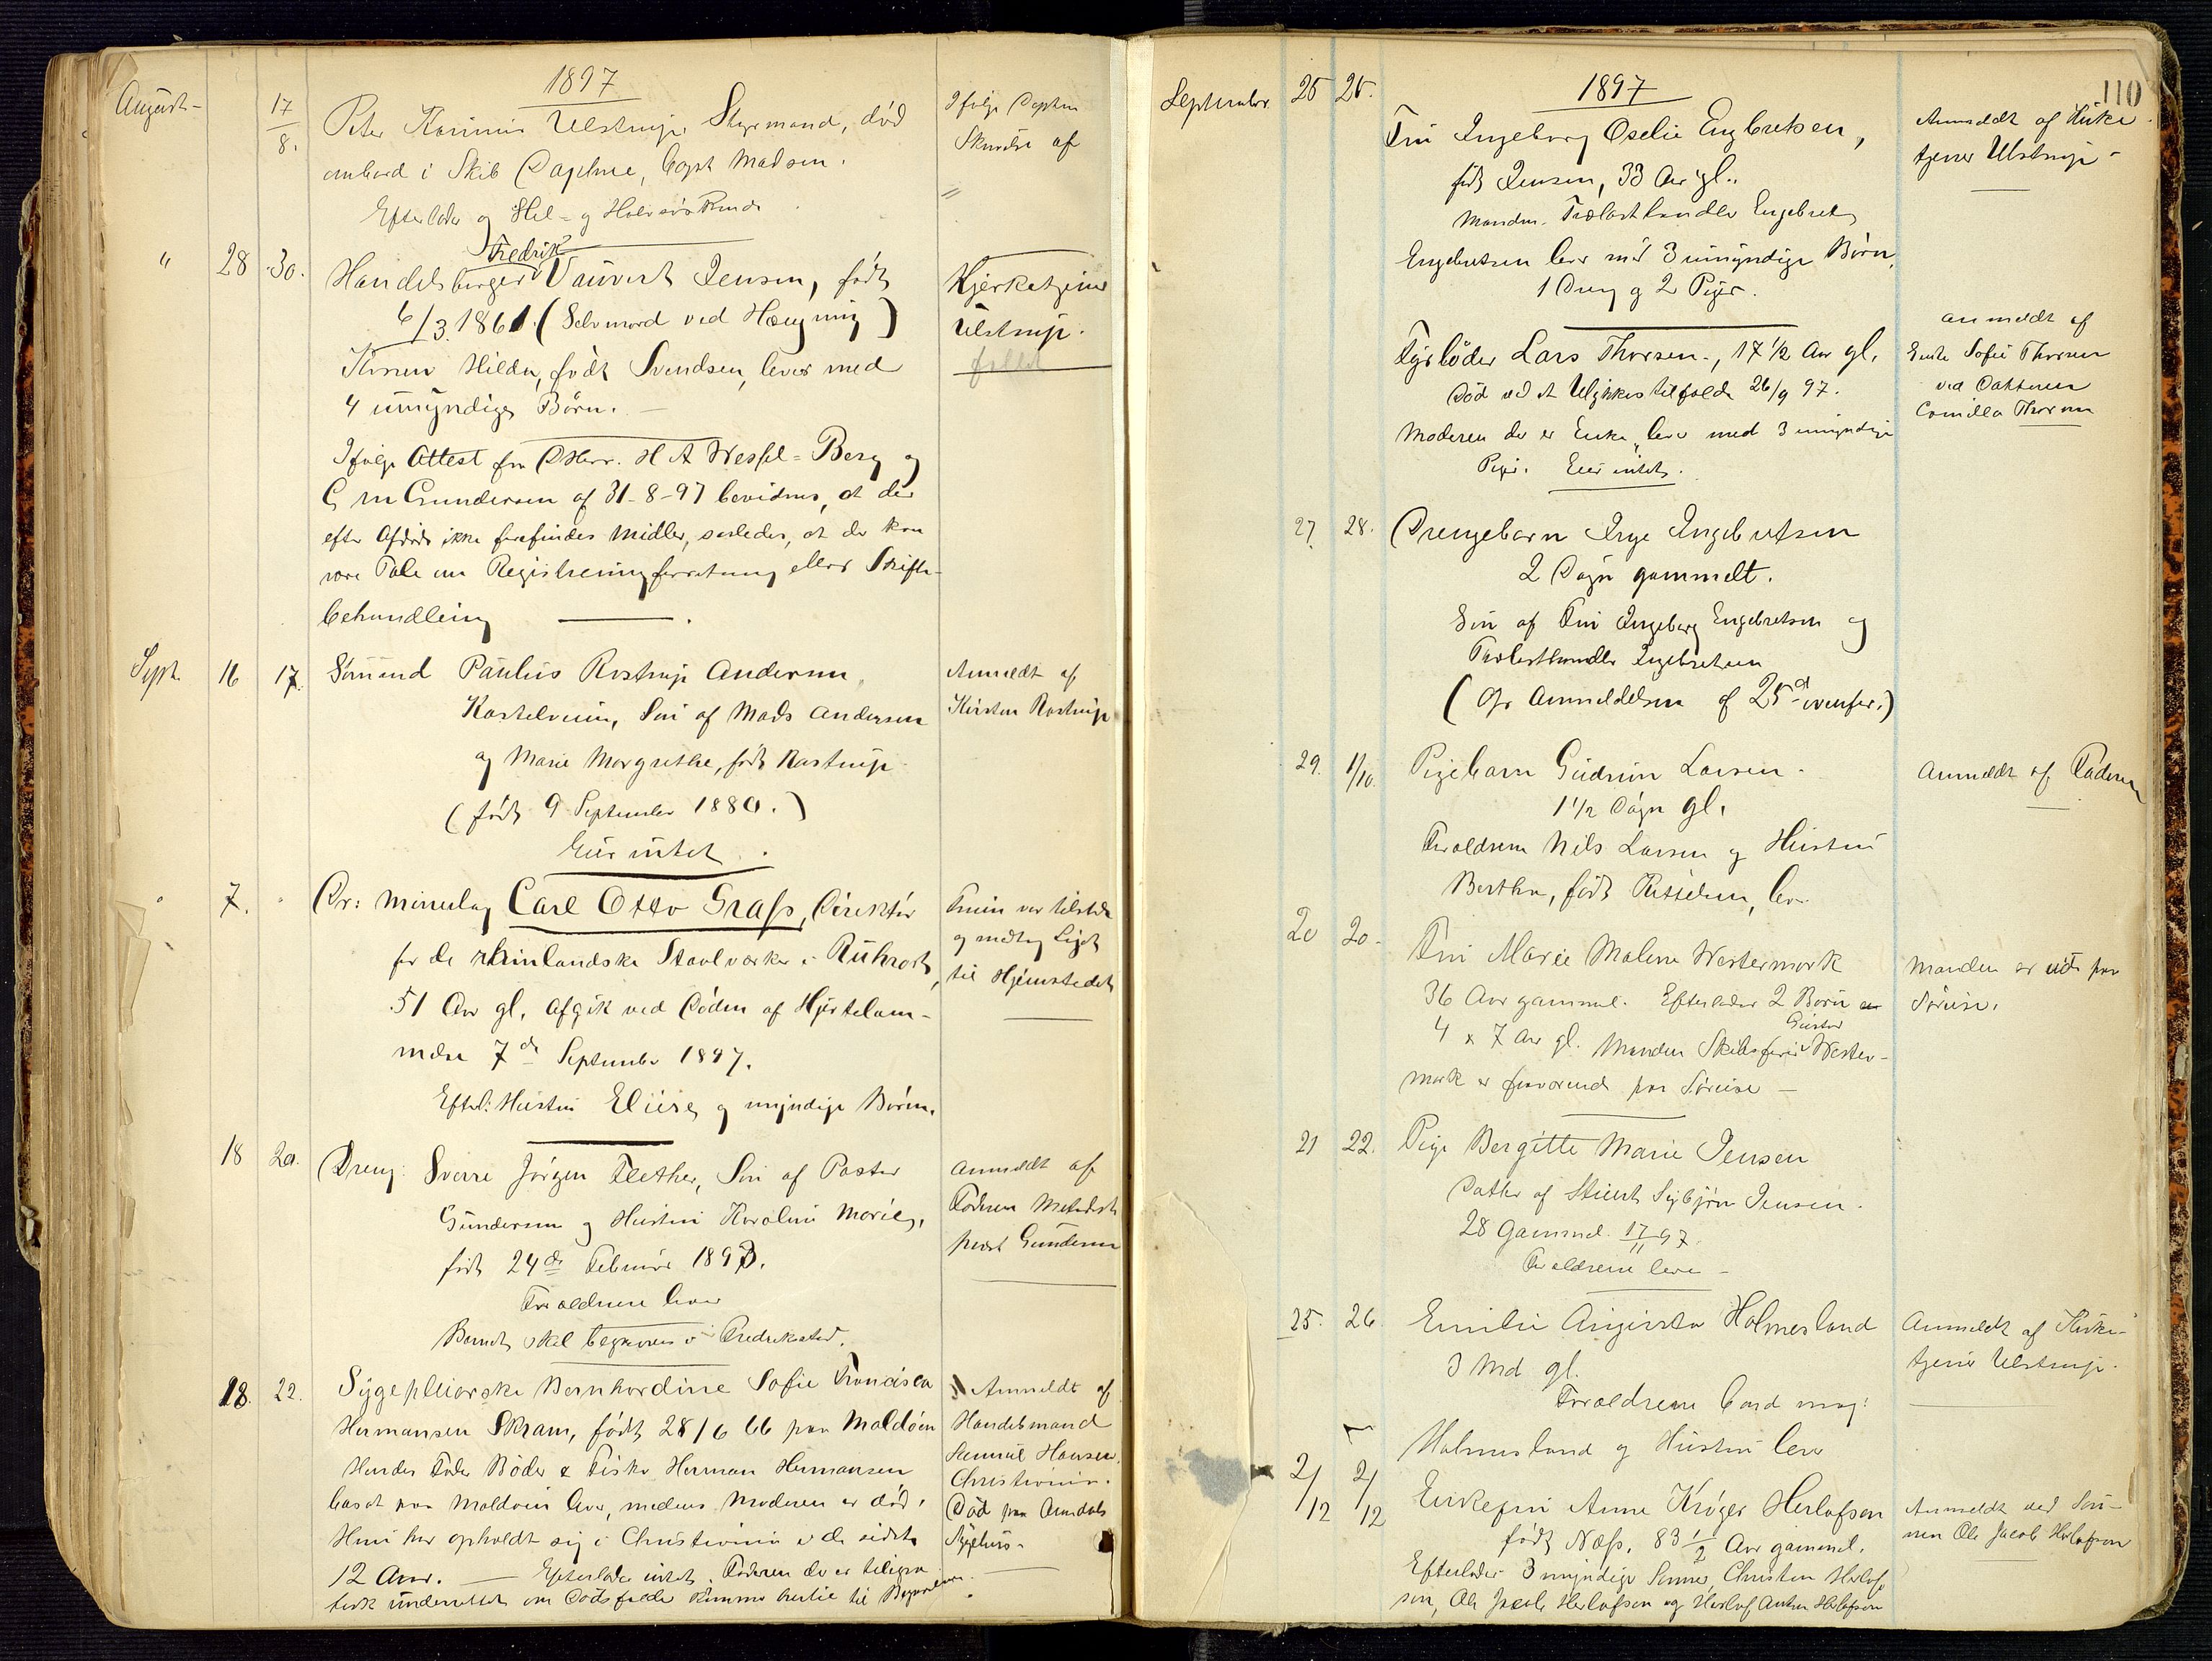 1897
August- 17/8. Peter Ulstrup, Styrmand, død
ombord i Skib Daphne, Capt Madsen.
Efterlader og Hel- og Halvsøskende
Ifølge Daphne
Skrivelse af
"
" 28 30. Handelsborger Fredrik Vauvert Jensen, født
6/3 1861. (Selvmord ved Hængning)
Konen Hilda, født Svendsen, lever med
4 umyndige Børn. -
Kjerketjener
Ulstrup.
Ifølge Attest fra DHerr. H A Wessel-Berg og
G M Gundersen af 31-8-97 bevidnes, at der
efter Afdøde ikke forefindes Midler, saaledes, at der kan
være Tale om Registreringsforretning eller Skifte-
behandling
Sept. 16 17. Sømand Paulus Rostrup Andersen,
Kastelveien, Søn af Mads Andersen
og Marie Margrethe, født Rostrup
(født 9 September 1880.)
Eier intet.
Anmeldt af
Kirsten Rostrup
" 7. " Dr: Carl Otto Grass, Direktør
for de rhinlandske Staalværker i Ruhrort,
51 Aar gl, afgik ved Døden af Hjertelam-
melse 7de September 1897.
Efterl: Hustru Elise, og myndige Børn.
Fruen var tilstede
og modtog Liget
til Hjemstedet
18 20. Dreng: Sverre Jørgen Flether, Søn af Pastor
Gundersen og Hustru Karoline Marie,
født 24de Februar 1893.
Forældrene lever
Barnet skal begraves i Fredrikstad.
Anmeldt af
Faderen Methodist
prest Gundersen
18. 22. Sygepleierske Bernhardine Sofie Francisca
Hermansen Skram, født 28/6 66 paa Maldøen
Hendes Fader Bøder & Fisker Herman Hermansen
bosat paa Maldøen lever, medens Moderen er død.
Hun har opholdt sig i Christiania i de sidste
12 Aar. - Efterlader intet. Faderen der er telegra
fisk underrettet om Dødsfaldet kommer hertil til Begravelsen.
Anmeldt af
Handelsmand
Samuel Hansen,
Christiania.
Død paa Arendals
Sygehus-
110
1897
September 25 25. Fru Ingeborg Oselie Engbretsen,
født Jensen, 33 Aar gl.
Manden Trælasthandler Engebret
Engebretsen lever med 3 umyndige Børn,
1 Dreng og 2 Piger.
Anmeldt af Kirke-
tjener Ulstrup-
Fyrbøder Lars Thorsen, 17½ Aar gl.
Død ved et Ulykkestilfælde 26/9 97.
Moderen der er Enke, lever med 3 umyndige
Piger. Eier intet.
Anmeldt af
Enke Sofie Thorsen
ved Datteren
Camilla Thorsen
27. 28. Drengebarn Inge Engebretsen
2 Døgn gammelt.
Søn af Fru Ingeborg Engebretsen og
Trælasthandler Engebretsen
(Cfr Anmeldelsen af 25d ovenfor.)
29. 1/10. Pigebarn Gudrun Larsen.
1½ Døgn gl.
Forældrene Nils Larsen og Hustru
Bertha, født, lever
Anmeldt af Faderen
20 20. Fru Marie Malene Westermark
36 Aar gammel. Efterlader 2 Børn
4 & 7 Aar gl. Manden Skibsfører Gustav Wester-
mark er fraværende paa Søreise -
Manden er ude paa
Søreise.
21 22. Pige Bergitte Marie Jensen
Datter af Stuert Jensen.
28 gammel. 17/11 97.
Forældrene lever -
25. 26. Emilie Augusta Holmesland
3 Md gl.
Forældrene Cand mag:
Holmesland og Hustru lever
Anmeldt af Kirke-
tjener Ulstrup.
2/12 2/12 Enkefru Anne Krøger Herlofson
født Næss, 83½ Aar gammel.
Efterlader 3 myndige Sønner, Christen Herlof-
son, Ole Jacob Herlofson og Herlof Anton Herlofson
Anmeldt ved Søn-
nen Ole Jacob Herlofson